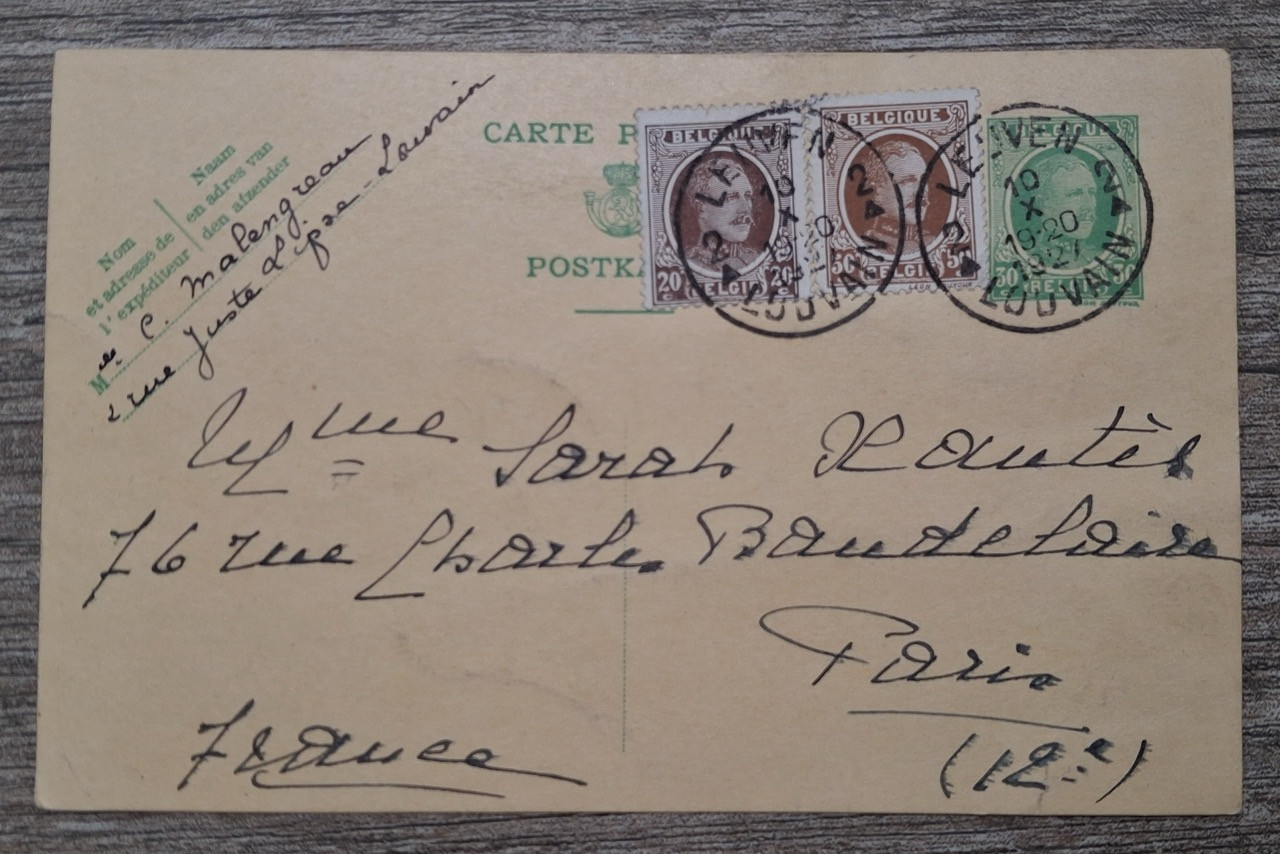 CARTE P
POSTKA
Nom
et adresse de
l'expéditeur
Naam
en adres van
den afzender
Mlle C. Malengreau
2 rue Juste Lipse - Louvain
BELGIQUE
20 20
BELGIË
BELGIQUE
50 50
BELGIË
BELGIQUE
30 30
LEUVEN 2
10
X
19-20
1927
2 LOUVAIN
LEUVEN 2
10
X
19-20
1927
2 LOUVAIN
Mme Sarah
76 rue Charles Baudelaire
Paris
(12.e)
France